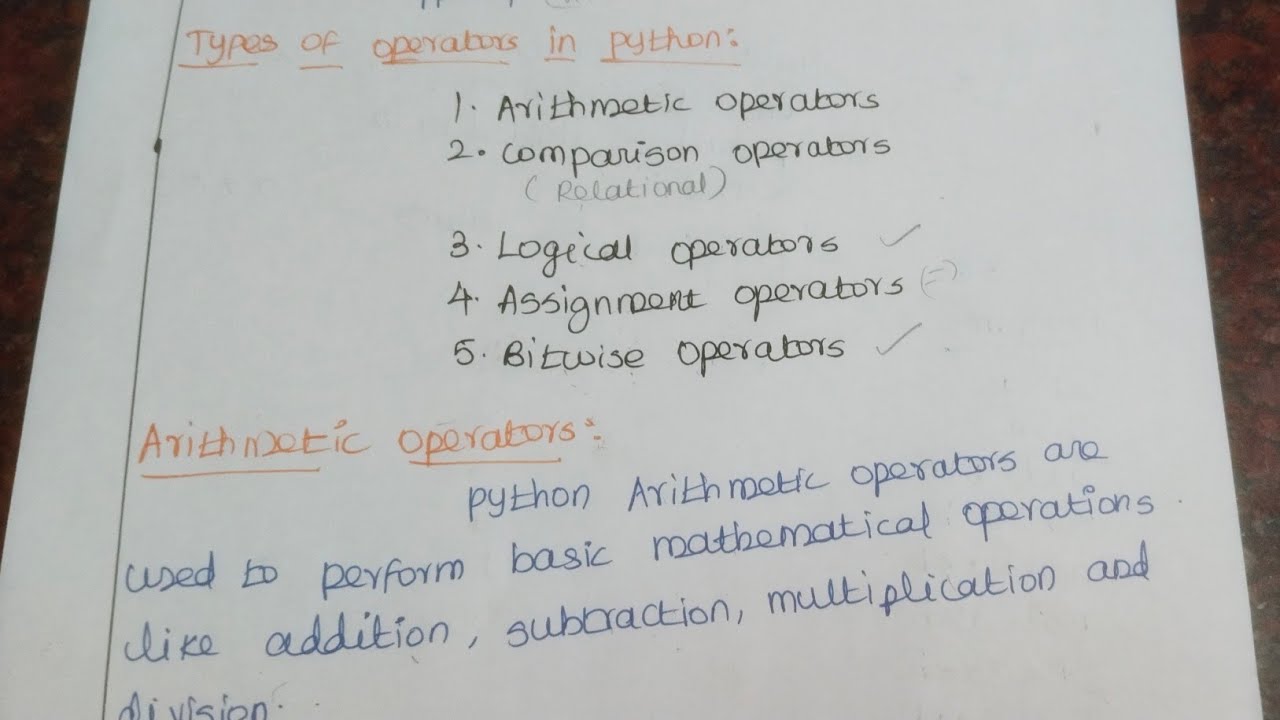 Types of operators in python:
1. Arithmetic operators
2. Comparison operators
(Relational)
3. Logical operators ✓
4. Assignment operators (=)
5. Bitwise operators ✓
Arithmetic operators:
python Arithmetic operators are
used to perform basic mathematical operations
like addition, subtraction, multiplication and
division.